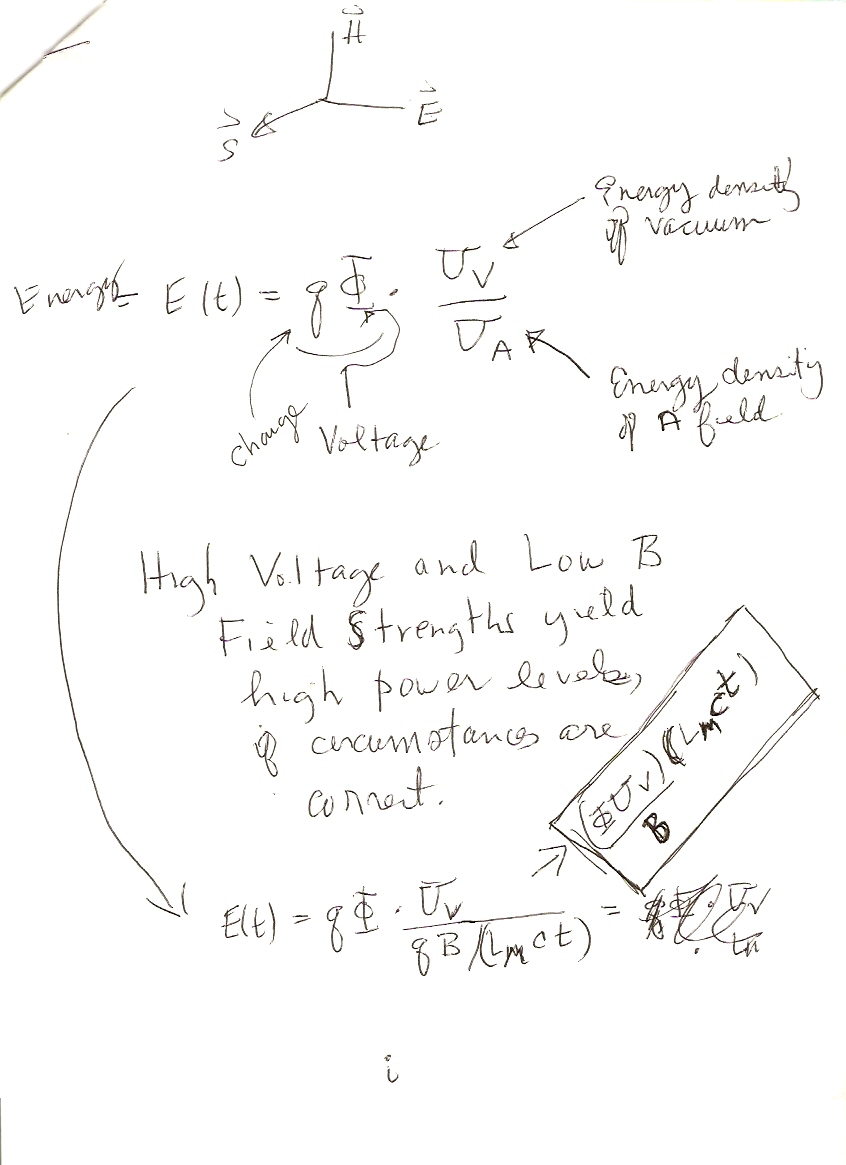 H⃗
E⃗
S⃗
Energy density
of vacuum
Energy = E(t) = qΦ · U_V / U_A
Energy density
of A field
charge
Voltage
High Voltage and Low B
Field Strengths yield
high power levels,
if circumstances are
correct.
(ΦU_V / B)(L_m ct)
E(t) = qΦ · U_V / qB/(L_m ct) =
i